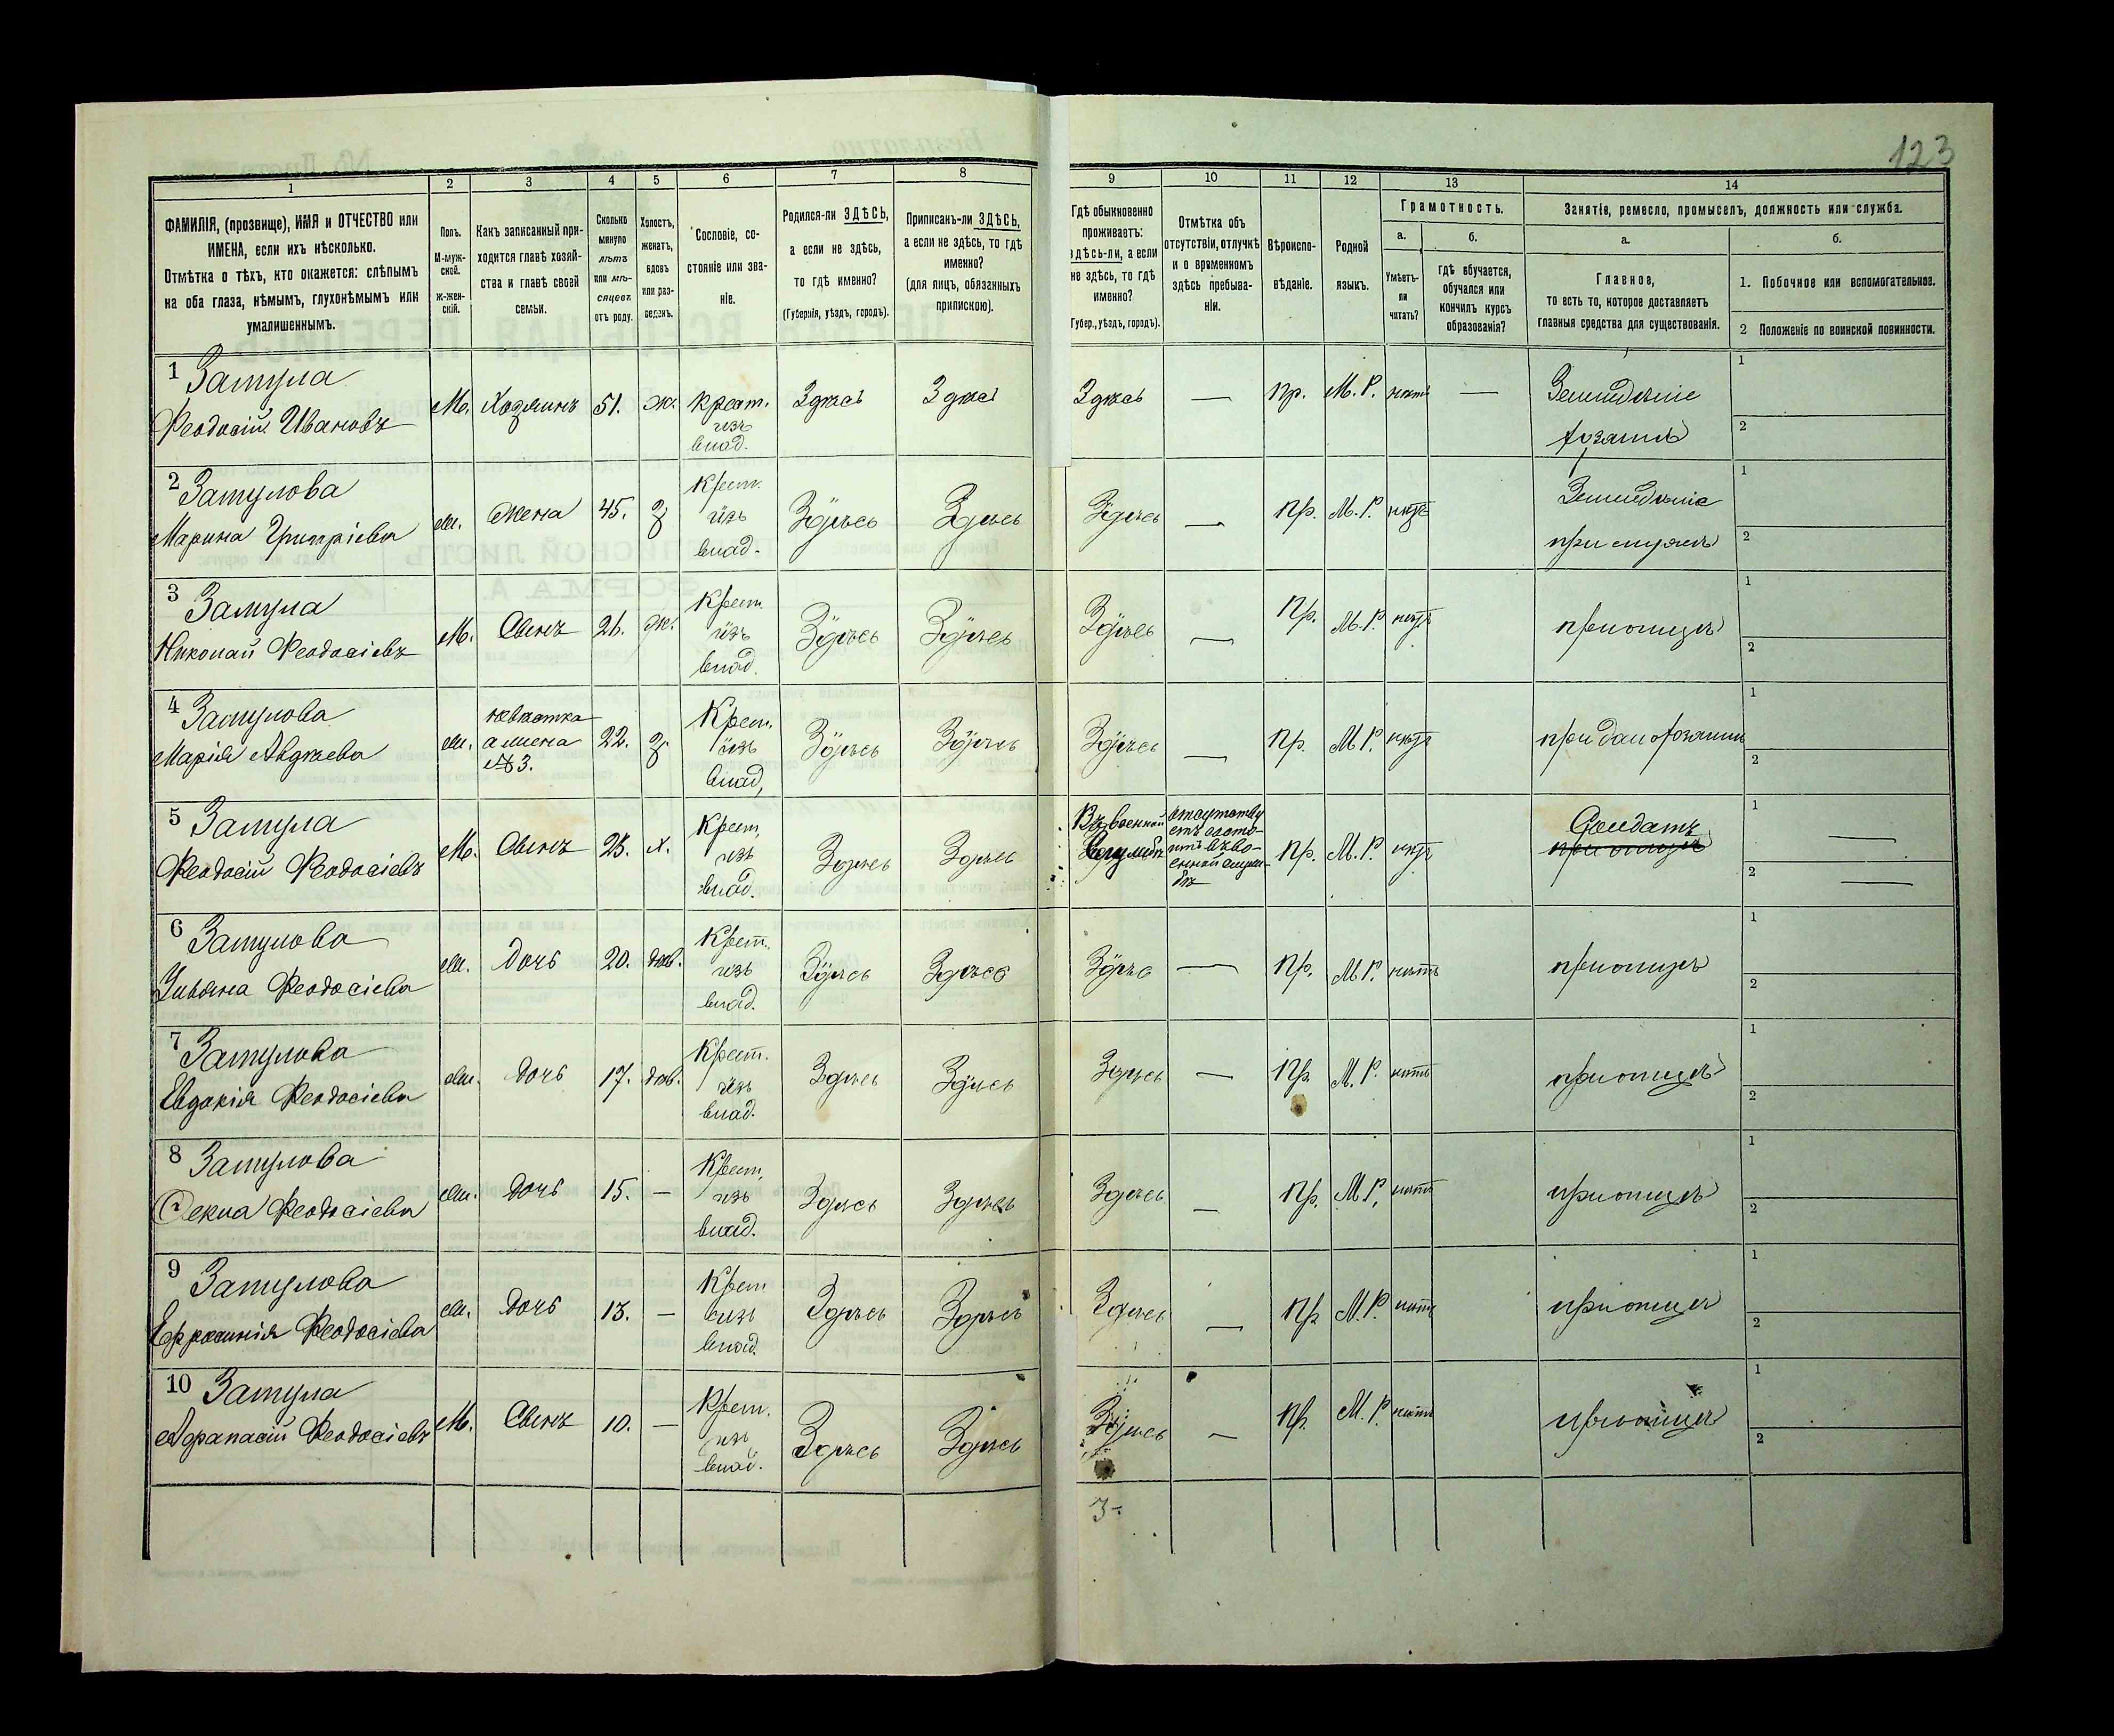 123
1 2 3 4 5 6 7 8 9 10 11 12 13 14
ФАМИЛІЯ, (прозвище), ИМЯ и ОТЧЕСТВО или
ИМЕНА, если ихъ нѣсколько.
Отмѣтка о тѣхъ, кто окажется: слѣпымъ
на оба глаза, нѣмымъ, глухонѣмымъ или
умалишеннымъ.
Полъ.
М-муж-
ской.
ж-жен-
скій.
Какъ записанный при-
ходится главѣ хозяй-
ства и главѣ своей
семьи.
Сколько
минуло
лѣтъ
или мѣ-
сяцевъ
отъ роду.
Холостъ,
женатъ,
вдовъ
или раз-
веденъ.
Сословіе, со-
стояніе или зва-
ніе.
Родился-ли ЗДѢСЬ,
а если не здѣсь,
то гдѣ именно?
(Губернія, уѣздъ, городъ).
Приписанъ-ли ЗДѢСЬ,
а если не здѣсь, то гдѣ
именно?
(для лицъ, обязанныхъ
припискою).
Гдѣ обыкновенно
проживаетъ:
здѣсь-ли, а если
не здѣсь, то гдѣ
именно?
Губер., уѣздъ, городъ).
Отмѣтка объ
отсутствіи, отлучкѣ
и о временномъ
здѣсь пребыва-
ніи.
Вѣроиспо-
вѣданіе.
Родной
языкъ.
Грамотность.
а.
Умѣетъ-
ли
читать?
б.
гдѣ обучается,
обучался или
кончилъ курсъ
образованія?
Занятіе, ремесло, промыселъ, должность или служба.
а.
Главное,
то есть то, которое доставляетъ
главныя средства для существованія.
б.
1. Побочное или вспомогательное.
2 Положеніе по воинской повинности.
1 Затула
Феодосій Ивановъ
М. Хозяинъ 51. ж. Крест.
изъ
влад.
Здѣсь Здѣсь Здѣсь — Пр. М.Р. нѣтъ —
Земледѣліе
хозяинъ
1
2
2 Затулова
Марина Григоріева
ж. жена 45. з Крест.
изъ
влад.
Здѣсь Здѣсь Здѣсь — Пр. М.Р. нѣтъ
Земледѣліе
при мужѣ
1
2
3 Затула
Николай Феодосіевъ
М. Сынъ 26. ж. Крест.
изъ
влад.
Здѣсь Здѣсь Здѣсь — Пр. М.Р. нѣтъ
при отцѣ
1
2
4 Затулова
Марія Авдѣева
ж. невѣстка
а жена
№ 3.
22. з Крест.
изъ
влад.
Здѣсь Здѣсь Здѣсь — Пр. М.Р. нѣтъ
1
2
5 Затула
Феодосій Феодосіевъ
М. Сынъ 23. х. Крест.
изъ
влад.
Здѣсь Здѣсь
Въ военной
службѣ
отсутству
етъ состо-
итъ въ во-
енной служ-
бѣ
Пр. М.Р. нѣтъ
Солдатъ
при отцѣ
1 —
2 —
6 Затулова
Ульяна Феодосіева
ж. дочь 20. дѣв. Крест.
изъ
влад.
Здѣсь Здѣсь Здѣсь — Пр. М.Р. нѣтъ
при отцѣ
1
2
7 Затулова
Евдокія Феодосіева
ж. дочь 17. дѣв. Крест.
изъ
влад.
Здѣсь Здѣсь Здѣсь — Пр. М.Р. нѣтъ
при отцѣ
1
2
8 Затулова
Фекла Феодосіева
ж. дочь 15. — Крест.
изъ
влад.
Здѣсь Здѣсь Здѣсь — Пр. М.Р. нѣтъ
при отцѣ
1
2
9 Затулова
Ефросинія Феодосіева
ж. дочь 13. — Крест
изъ
влад.
Здѣсь Здѣсь Здѣсь — Пр М.Р. нѣтъ
при отцѣ
1
2
10 Затула
Афанасій Феодосіевъ
М. Сынъ 10. — Крест.
изъ
влад.
Здѣсь Здѣсь Здѣсь — Пр. М.Р. нѣтъ
при отцѣ
1
2